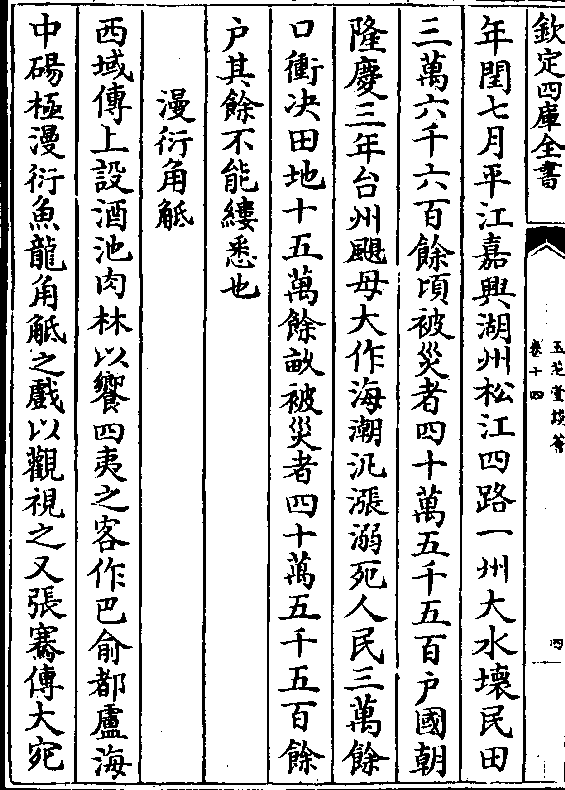 欽定四庫全書
玉芝堂談薈
卷十四
四
年閏七月平江嘉興湖州松江四路一州大水壞民田
三萬六千六百餘頃被災者四十萬五千五百戶國朝
隆慶三年台州颶母大作海潮汎漲溺死人民三萬餘
口衝决田地十五萬餘畝被災者四十萬五千五百餘
戶其餘不能縷悉也
漫衍角觝
西域傳上設酒池肉林以饗四夷之客作巴俞都盧海
中碭極漫衍魚龍角觝之戲以觀視之又張騫傳大宛